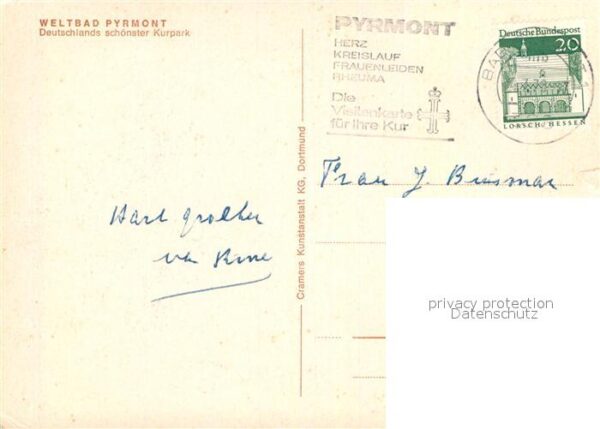 WELTBAD PYRMONT
Deutschlands schönster Kurpark
PYRMONT
HERZ
KREISLAUF
FRAUENLEIDEN
RHEUMA
Die
Visitenkarte
für Ihre Kur
BAD
Deutsche Bundespost
20
LORSCH/HESSEN
Cramers Kunstanstalt KG, Dortmund
Frau J.
privacy protection
Datenschutz